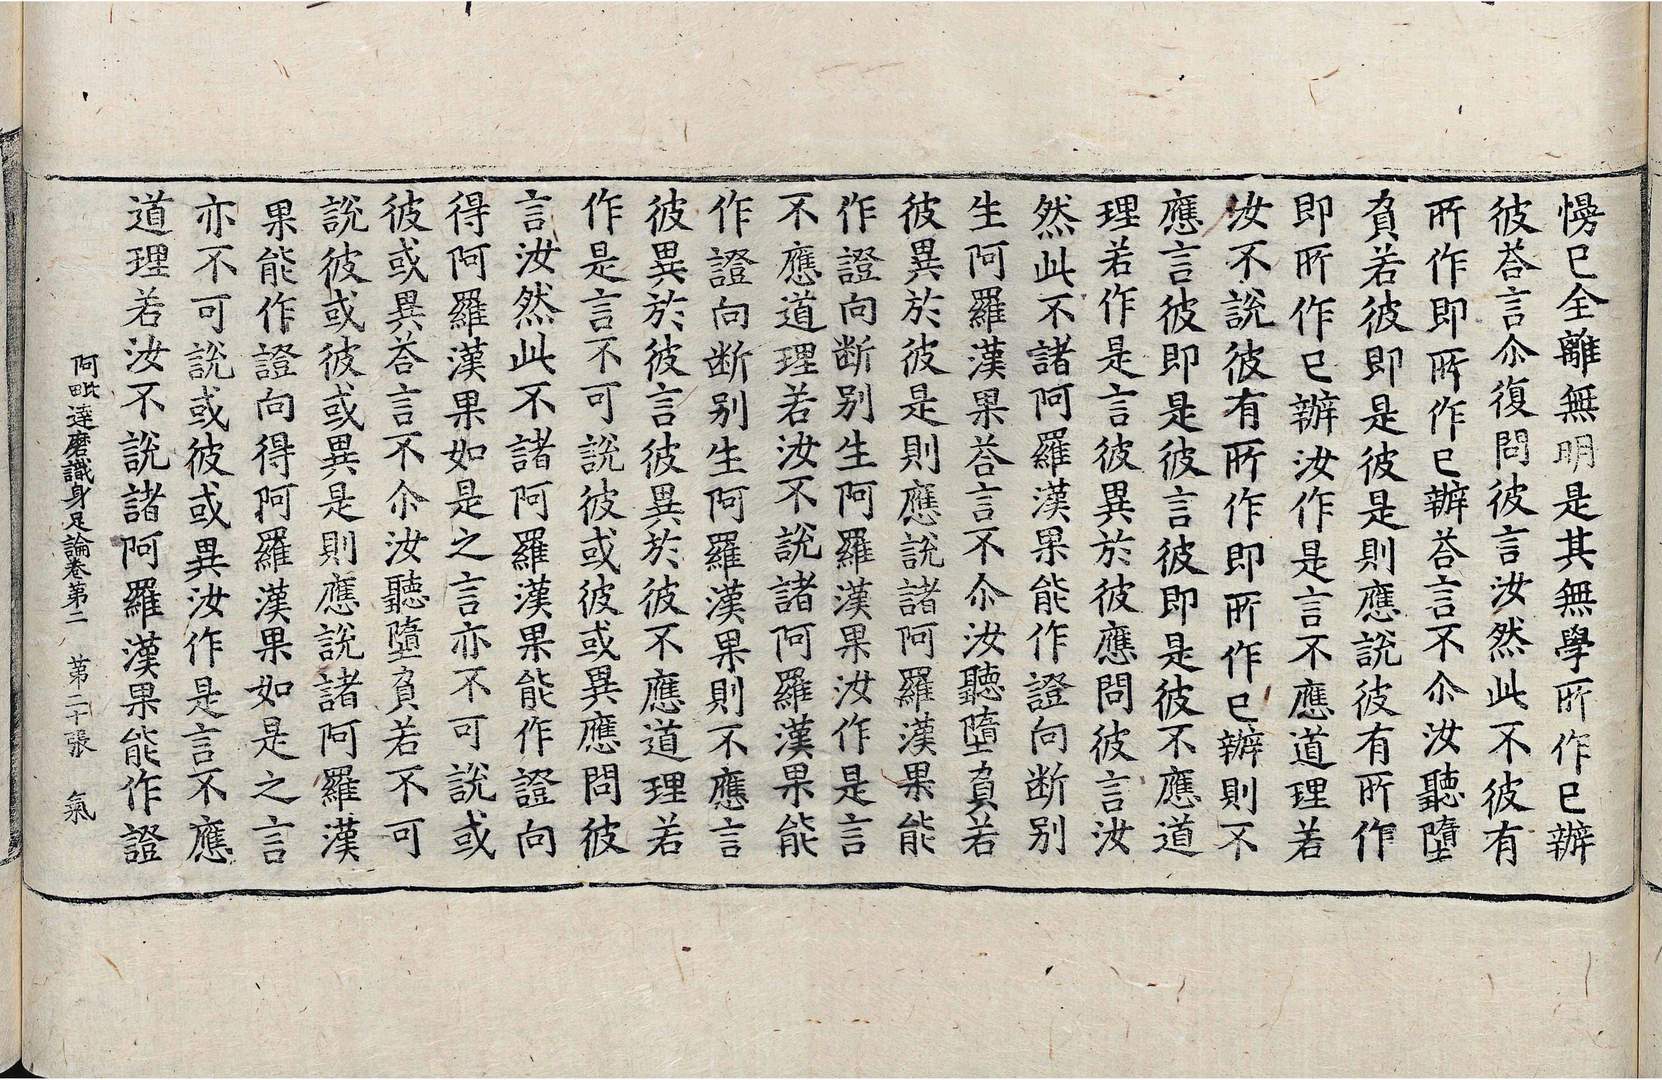 慢已全離無明是其無學所作已辦
彼荅言尒復問彼言汝然此不彼有
所作即所作已辦荅言不尒汝聽墮
負若彼即是彼是則應說彼有所作
即所作已辦汝作是言不應道理若
汝不說彼有所作即所作已辦則不
應言彼即是彼言彼即是彼不應道
理若作是言彼異於彼應問彼言汝
然此不諸阿羅漢果能作證向断别
生阿羅漢果荅言不尒汝聽墮負若
彼異於彼是則應說諸阿羅漢果能
作證向断别生阿羅漢果汝作是言
不應道理若汝不說諸阿羅漢果能
作證向断别生阿羅漢果則不應言
彼異於彼言彼異於彼不應道理若
作是言不可說彼或彼或異應問彼
言汝然此不諸阿羅漢果能作證向
得阿羅漢果如是之言亦不可說或
彼或異荅言不尒汝聽墮負若不可
說彼或彼或異是則應說諸阿羅漢
果能作證向得阿羅漢果如是之言
亦不可說或彼或異汝作是言不應
道理若汝不說諸阿羅漢果能作證
阿毗達磨識身足論卷第二 第二十張 氣